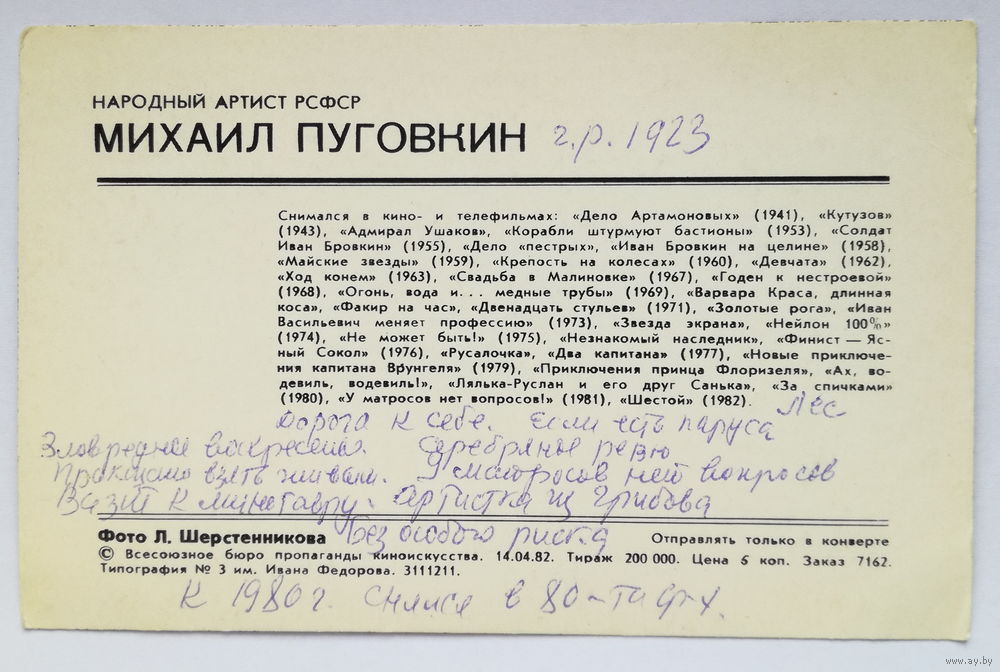 НАРОДНЫЙ АРТИСТ РСФСР
МИХАИЛ ПУГОВКИН г.р. 1923
Снимался в кино- и телефильмах: «Дело Артамоновых» (1941), «Кутузов»
(1943), «Адмирал Ушаков», «Корабли штурмуют бастионы» (1953), «Солдат
Иван Бровкин» (1955), «Дело «пестрых», «Иван Бровкин на целине» (1958),
«Майские звезды» (1959), «Крепость на колесах» (1960), «Девчата» (1962),
«Ход конем» (1963), «Свадьба в Малиновке» (1967), «Годен к нестроевой»
(1968), «Огонь, вода и... медные трубы» (1969), «Варвара Краса, длинная
коса», «Факир на час», «Двенадцать стульев» (1971), «Золотые рога», «Иван
Васильевич меняет профессию» (1973), «Звезда экрана», «Нейлон 100%»
(1974), «Не может быть!» (1975), «Незнакомый наследник», «Финист — Яс-
ный Сокол» (1976), «Русалочка», «Два капитана» (1977), «Новые приключе-
ния капитана Врунгеля» (1979), «Приключения принца Флоризеля», «Ах, во-
девиль, водевиль!», «Лялька-Руслан и его друг Санька», «За спичками»
(1980), «У матросов нет вопросов!» (1981), «Шестой» (1982). Лес
Дорога к себе. Если есть паруса
Зловредное воскресенье. Серебряное ревю
взять живым. У матросов нет вопросов
Визит к минотавру. Артистка из Грибова
Без особого риска
Фото Л. Шерстенникова Отправлять только в конверте
© Всесоюзное бюро пропаганды киноискусства. 14.04.82. Тираж 200 000. Цена 5 коп. Заказ 7162.
Типография № 3 им. Ивана Федорова. 3111211.
К 1980 г. снялся в 80-ти ф-х.
www.ay.by